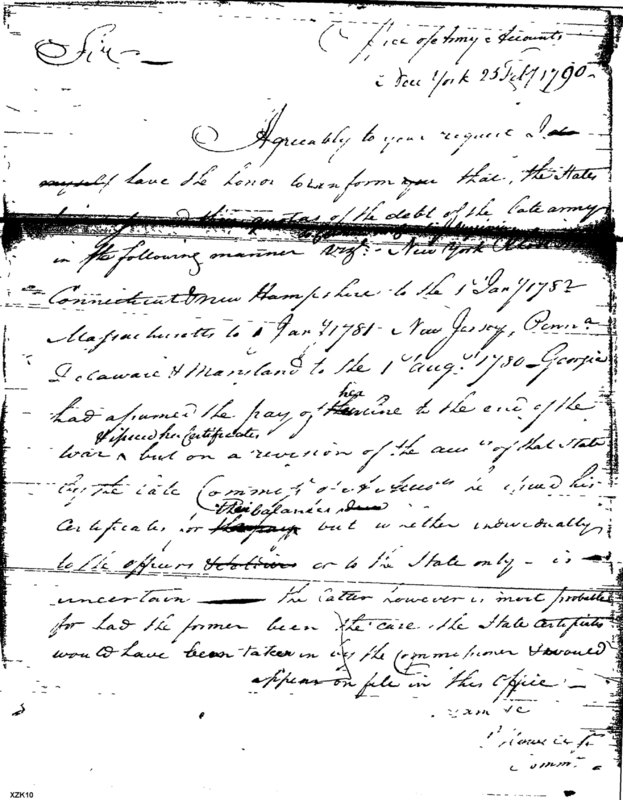 Office of Army Accounts
Sir
New York 25 Feby 1790
Agreeably to your request I do
myself have the honor to inform you that the States
their quotas of the debt of the late army
in the following manner vizt. New York Rhode
Connecticut & New Hampshire to the 1st Jany 1782
Massachusetts to 1 Jany 1781 New Jersey, Penna
Delaware & Maryland to the 1st Augt 1780 Georgia
her
had assumed the pay of line to the end of the
& issued her Certificates
war but on a revision of the of that State
by the late Commr of he issued his
their balances
Certificates for the pay but whether individually
to the officers or to the State only is
uncertain the latter however is most probable
for had the former been the case the State Certificates
would have been taken in by the Commissioner & would
appear on file in this Office
I am &c
Commr
XZK10